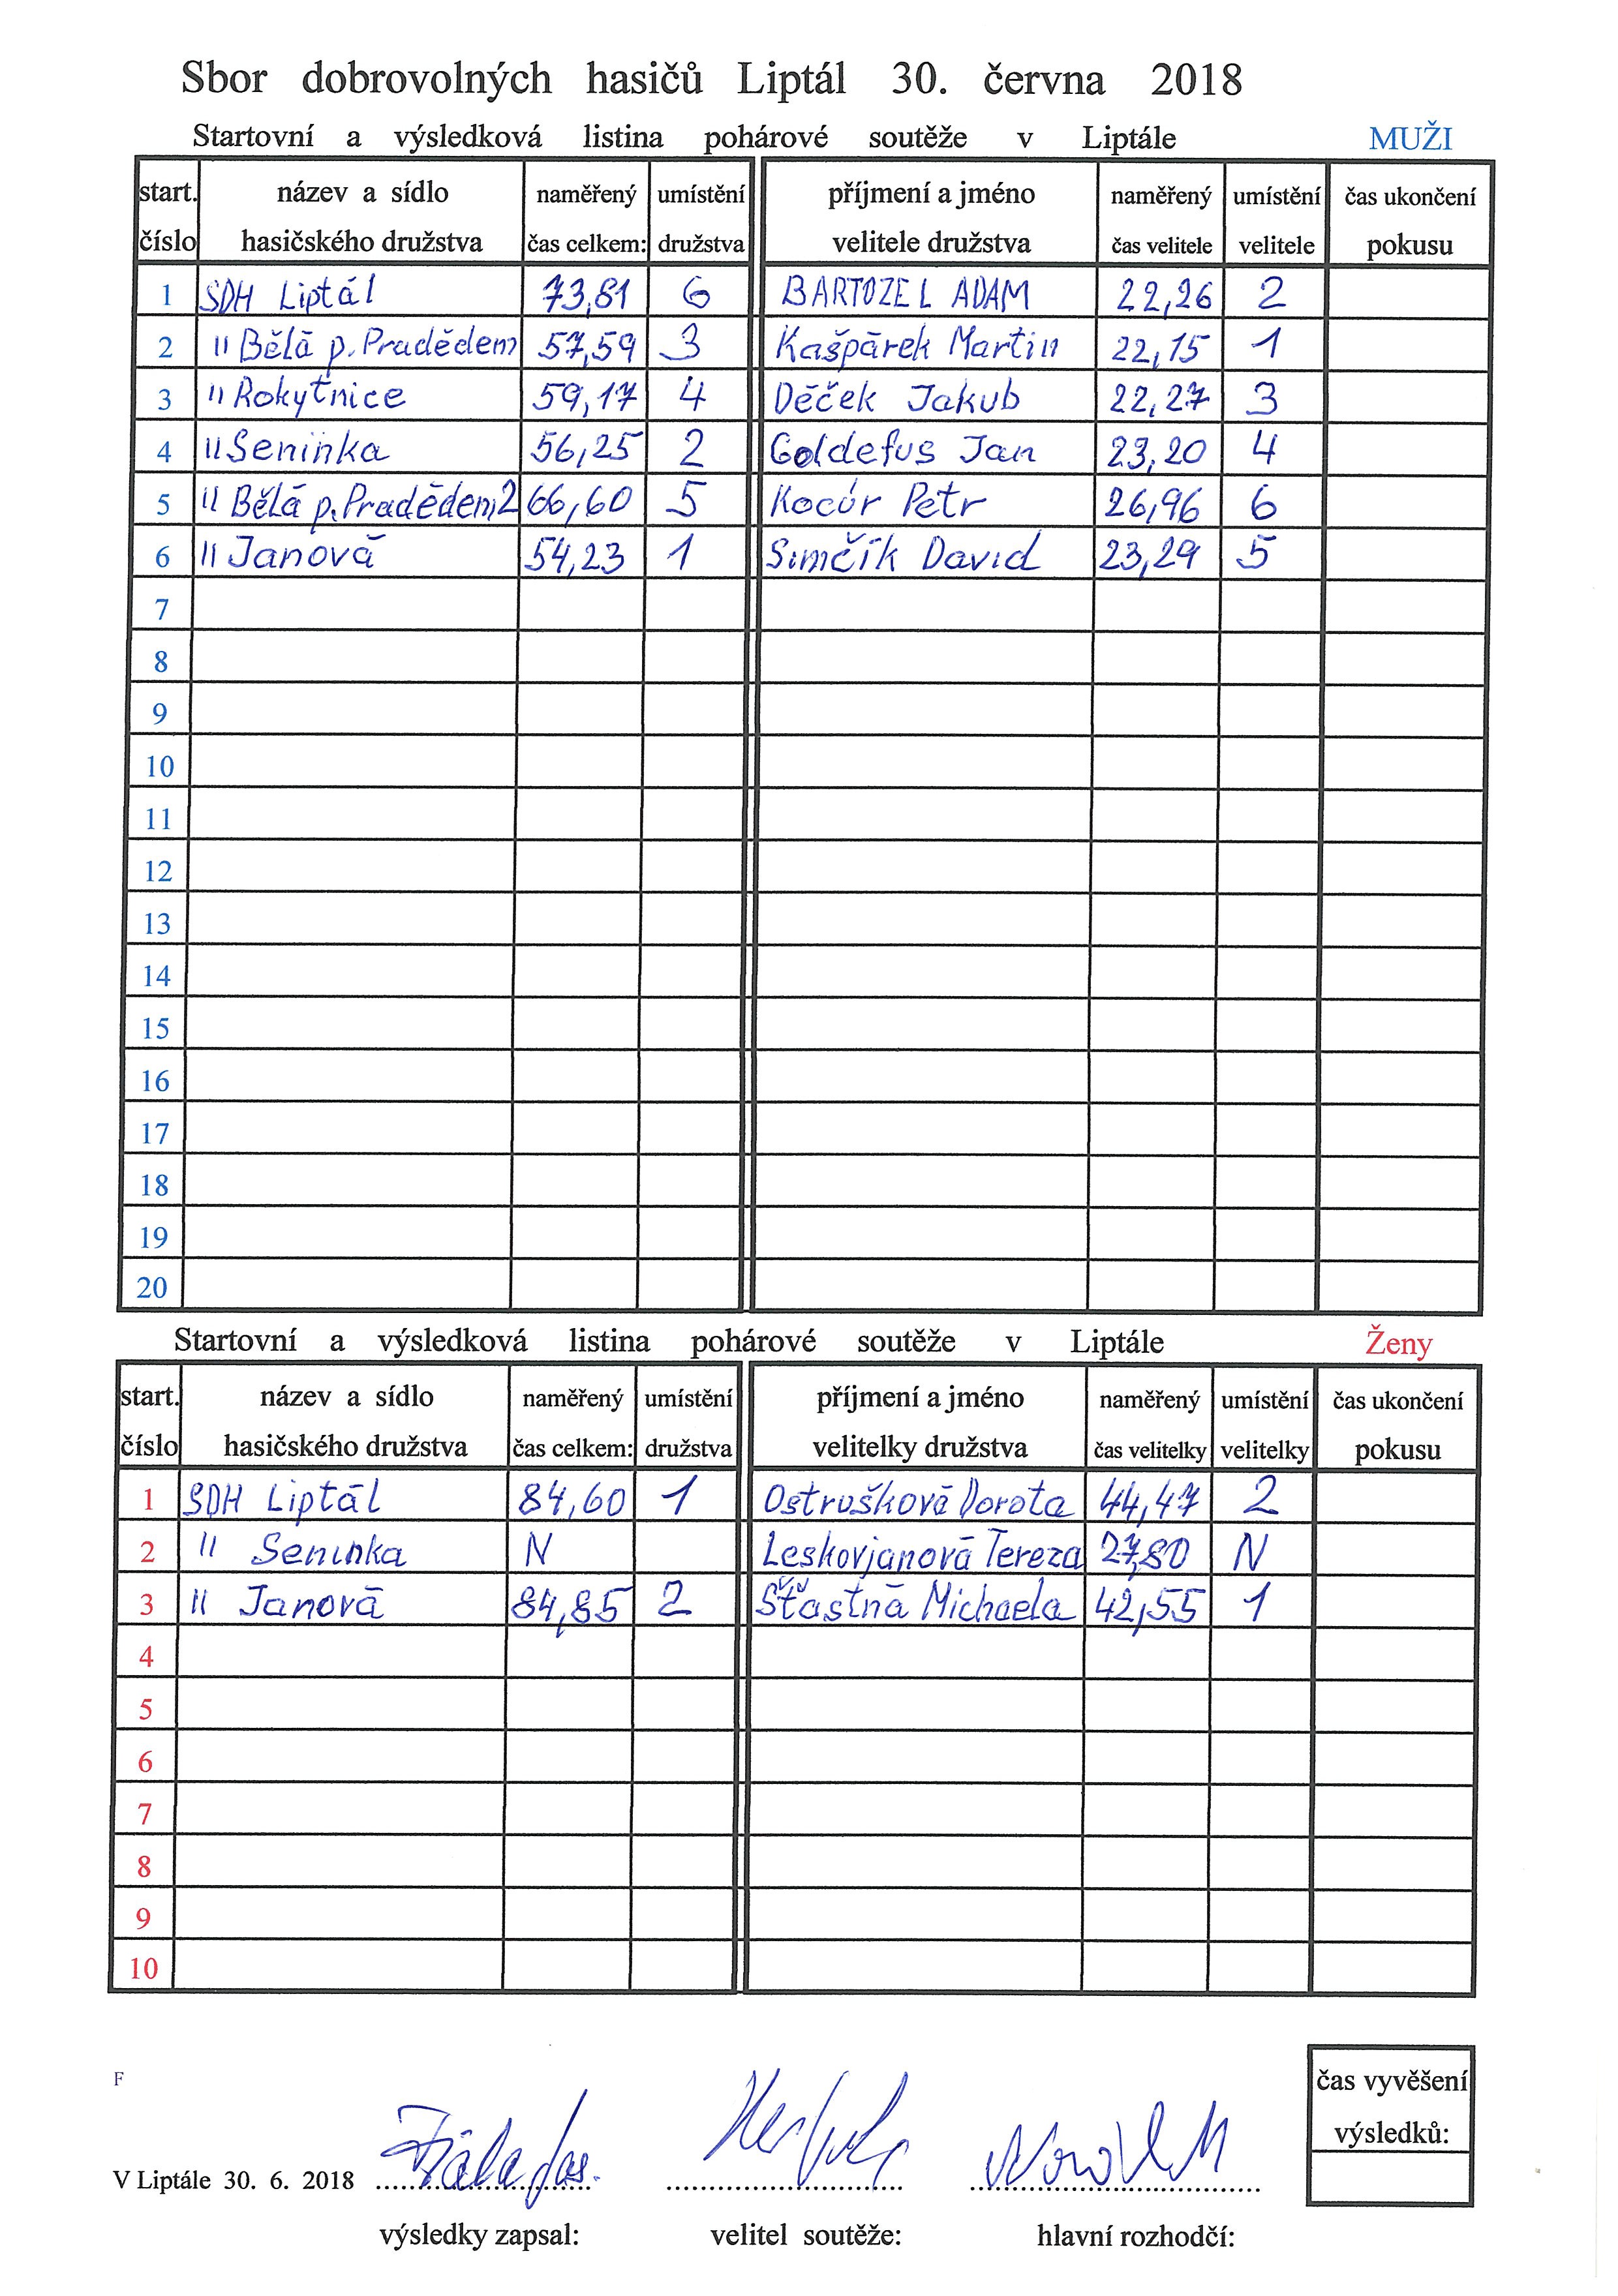 Sbor dobrovolných hasičů Liptál 30. června 2018
Startovní a výsledková listina pohárové soutěže v Liptále MUŽI
start. název a sídlo naměřený umístění příjmení a jméno naměřený umístění čas ukončení
číslo hasičského družstva čas celkem: družstva velitele družstva čas velitele velitele pokusu
1 SDH Liptál 73,81 6 BARTOZEL ADAM 22,26 2
2 " Bělá p. Pradědem 57,59 3 Kašpárek Martin 22,15 1
3 " Rokytnice 59,17 4 Děček Jakub 22,27 3
4 " Seninka 56,25 2 Goldefus Jan 23,20 4
5 " Bělá p. Pradědem 2 66,60 5 Kocúr Petr 26,96 6
6 " Janová 54,23 1 Simčík David 23,29 5
7
8
9
10
11
12
13
14
15
16
17
18
19
20
Startovní a výsledková listina pohárové soutěže v Liptále Ženy
start. název a sídlo naměřený umístění příjmení a jméno naměřený umístění čas ukončení
číslo hasičského družstva čas celkem: družstva velitelky družstva čas velitelky velitelky pokusu
1 SDH Liptál 84,60 1 Ostrušková Dorota 44,47 2
2 " Seninka N Leskovjanová Tereza 27,80 N
3 " Janová 84,85 2 Šťastná Michaela 42,55 1
4
5
6
7
8
9
10
F
čas vyvěšení
výsledků:
V Liptále 30. 6. 2018
výsledky zapsal: velitel soutěže: hlavní rozhodčí: